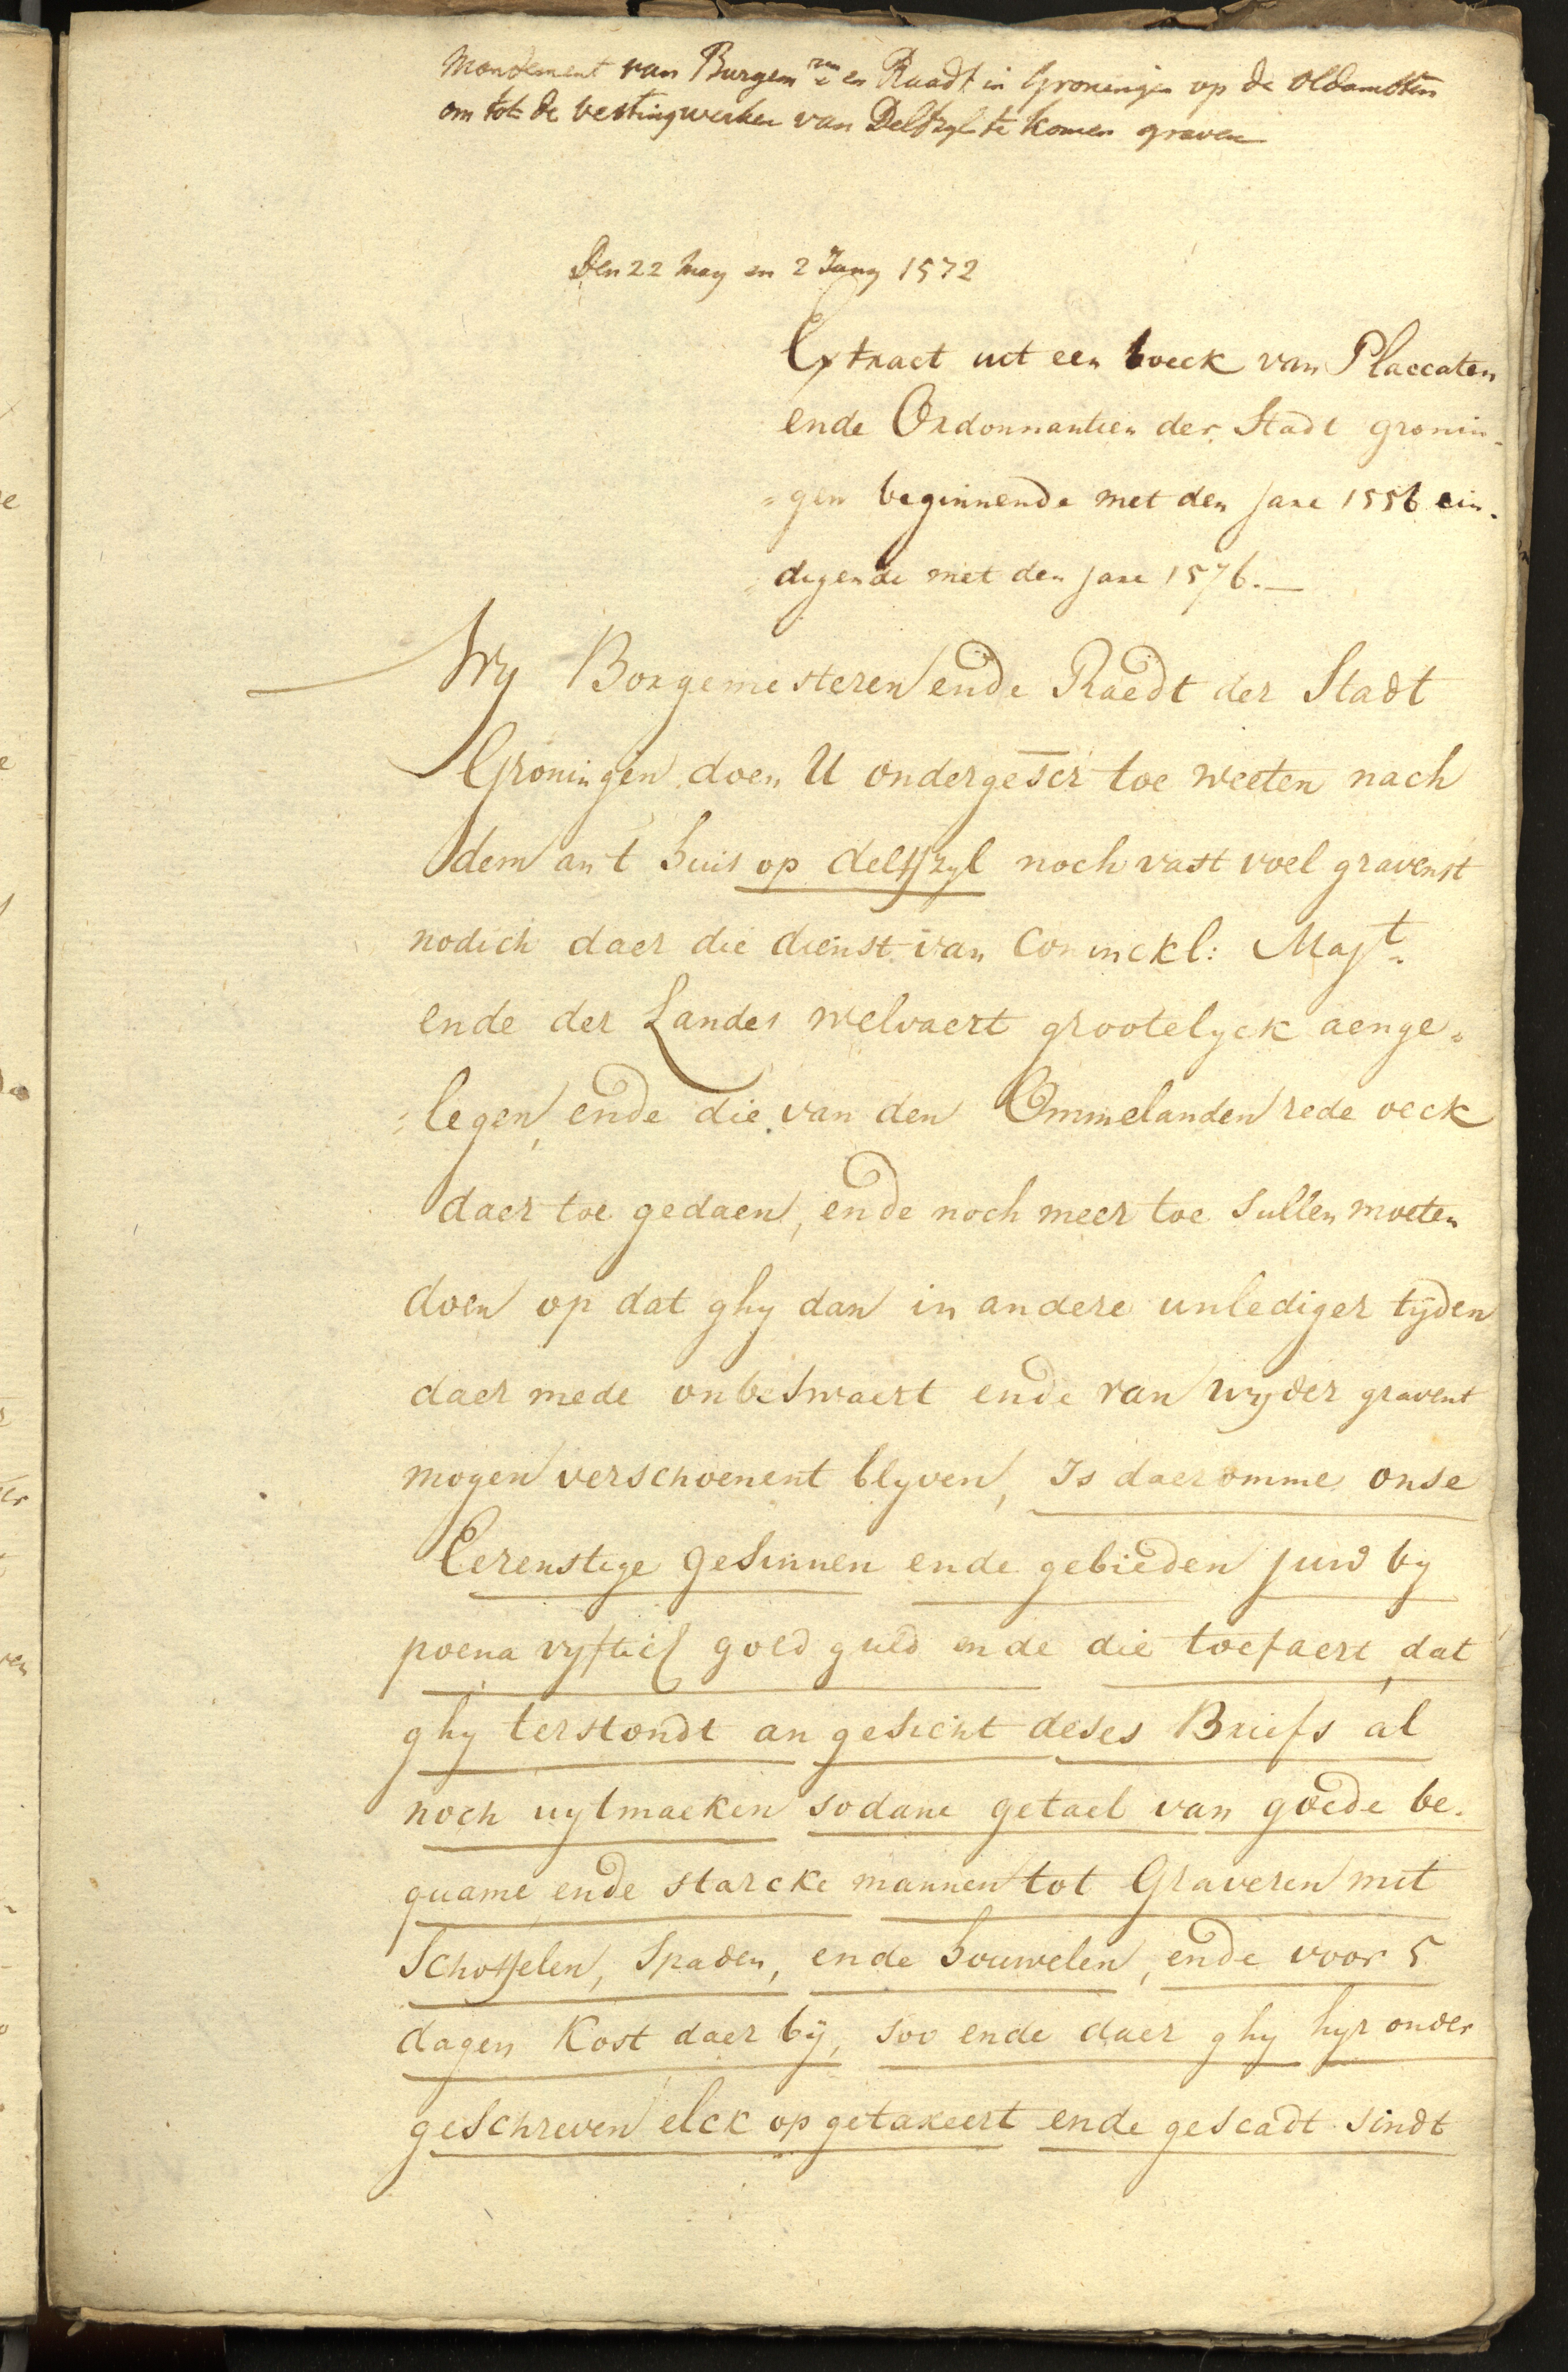 Mandement van Burgem.ren en Raadt in Groningen op de oldambten
om tot de vestingwerken van Delfzyl te komen graven
Den 22 May en 2 Juny 1572
Extract uct een boeck van Placcaten
ende Ordonnantien der Stadt gronin-
=gen beginnende met den jare 1556 ein-
digende met den jare 1576.—
Wy Borgemesteren ende Raedt der Stadt
Groningen doen U ondergescr toe weeten nach
dem an t huis op delffzyl noch vast voel gravenst
nodich daer die dienst van Coninckl: Majt.
ende der Landes welvaert grootelyck aenge=
=legen, ende die van den Ommelanden rede oeck
daer toe gedaen, ende noch meer toe sullen moeten
doen op dat ghy dan in andere unlediger tijden
daer mede onbeswaert ende van wyder gravent
mogen verschoenent blyven, Is daeromme onse
Eerenstige gesinnen ende gebieden juw by
poena vyftich goed guld ende die toefaert, dat
ghy terstondt an gesicht deses Briefs al
noch uytmaeken sodane getael van goede be-
quame ende starcke mannen tot Graveren mit
Schoffelen, Spaden, ende houwelen, ende voor 5
dagen Kost daer bij, soo ende daer ghy hyr onder
geschreven elck op getaxeert ende gescadt sindt